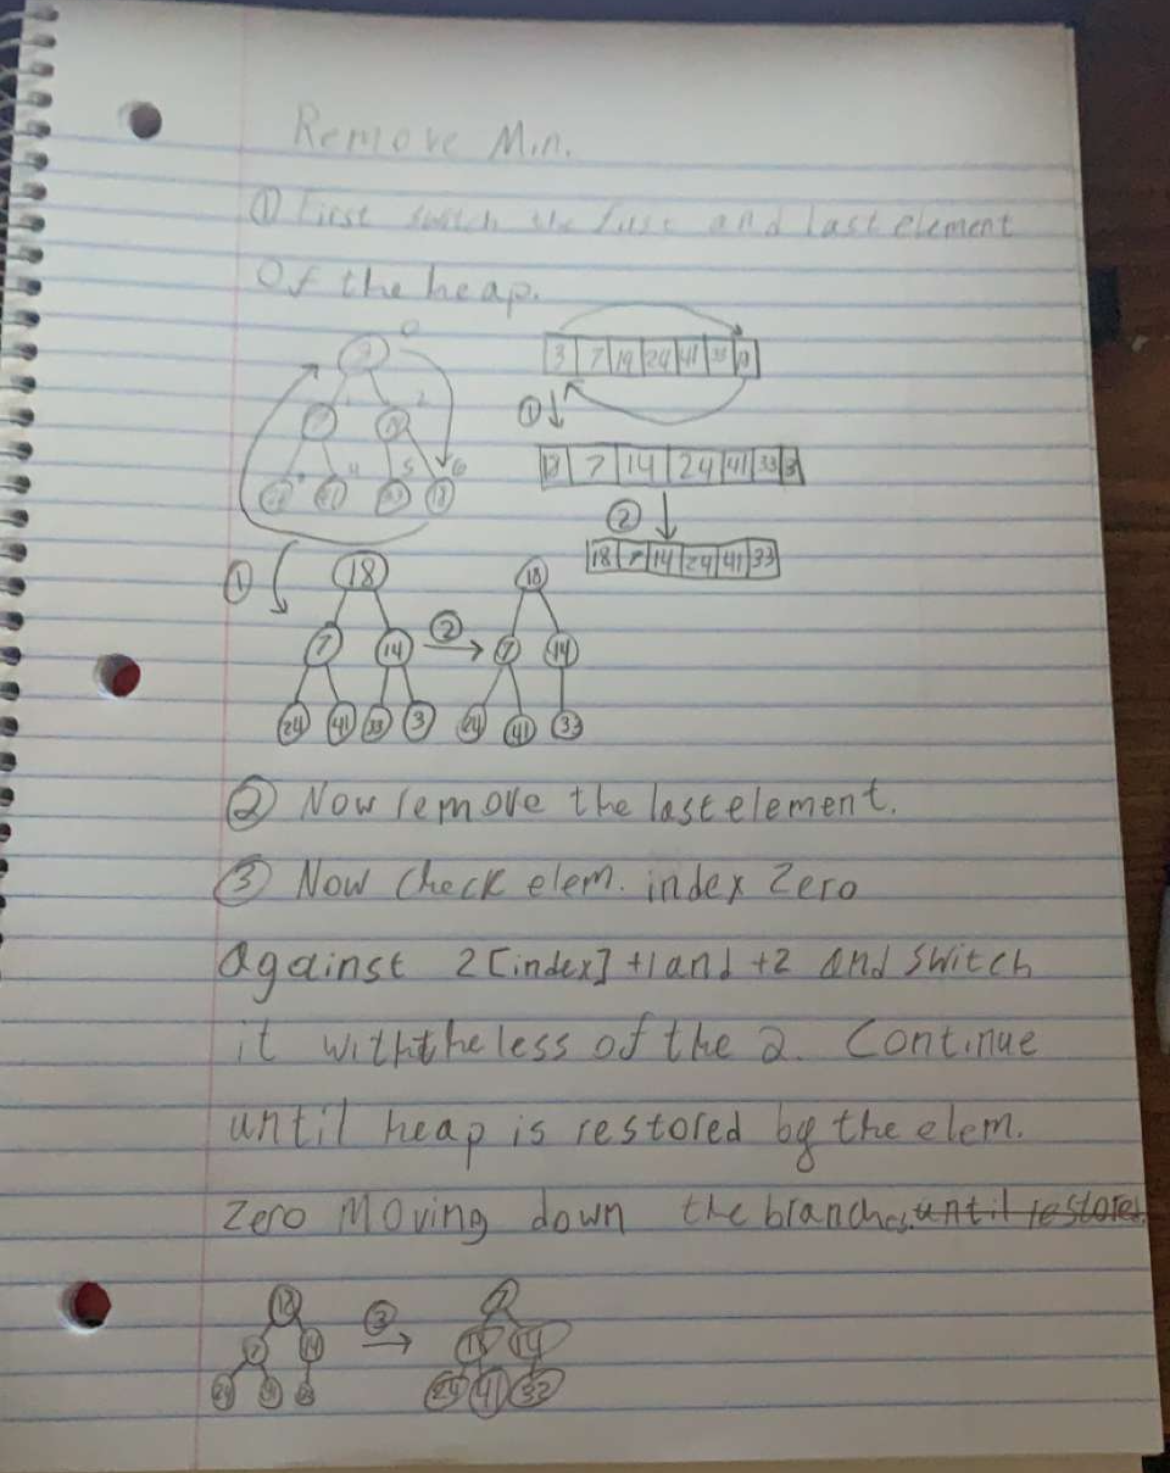 Remove Min.
① First switch the first and last element
Of the heap.
0
3 7 14 24 41 33 18
1 2
①
4 5 6
18 7 14 24 41 33 3
②
18 7 14 24 41 33
① 18 18
7 14 ② 7 14
24 41 33 3 24 41 33
② Now remove the last element.
③ Now Check elem. index Zero
Against 2[index] +1 and +2 and switch
it with the less of the 2. Continue
until heap is restored by the elem.
Zero Moving down the branches. until restored
18 ③ 7
7 14 18 14
24 41 33 24 41 32